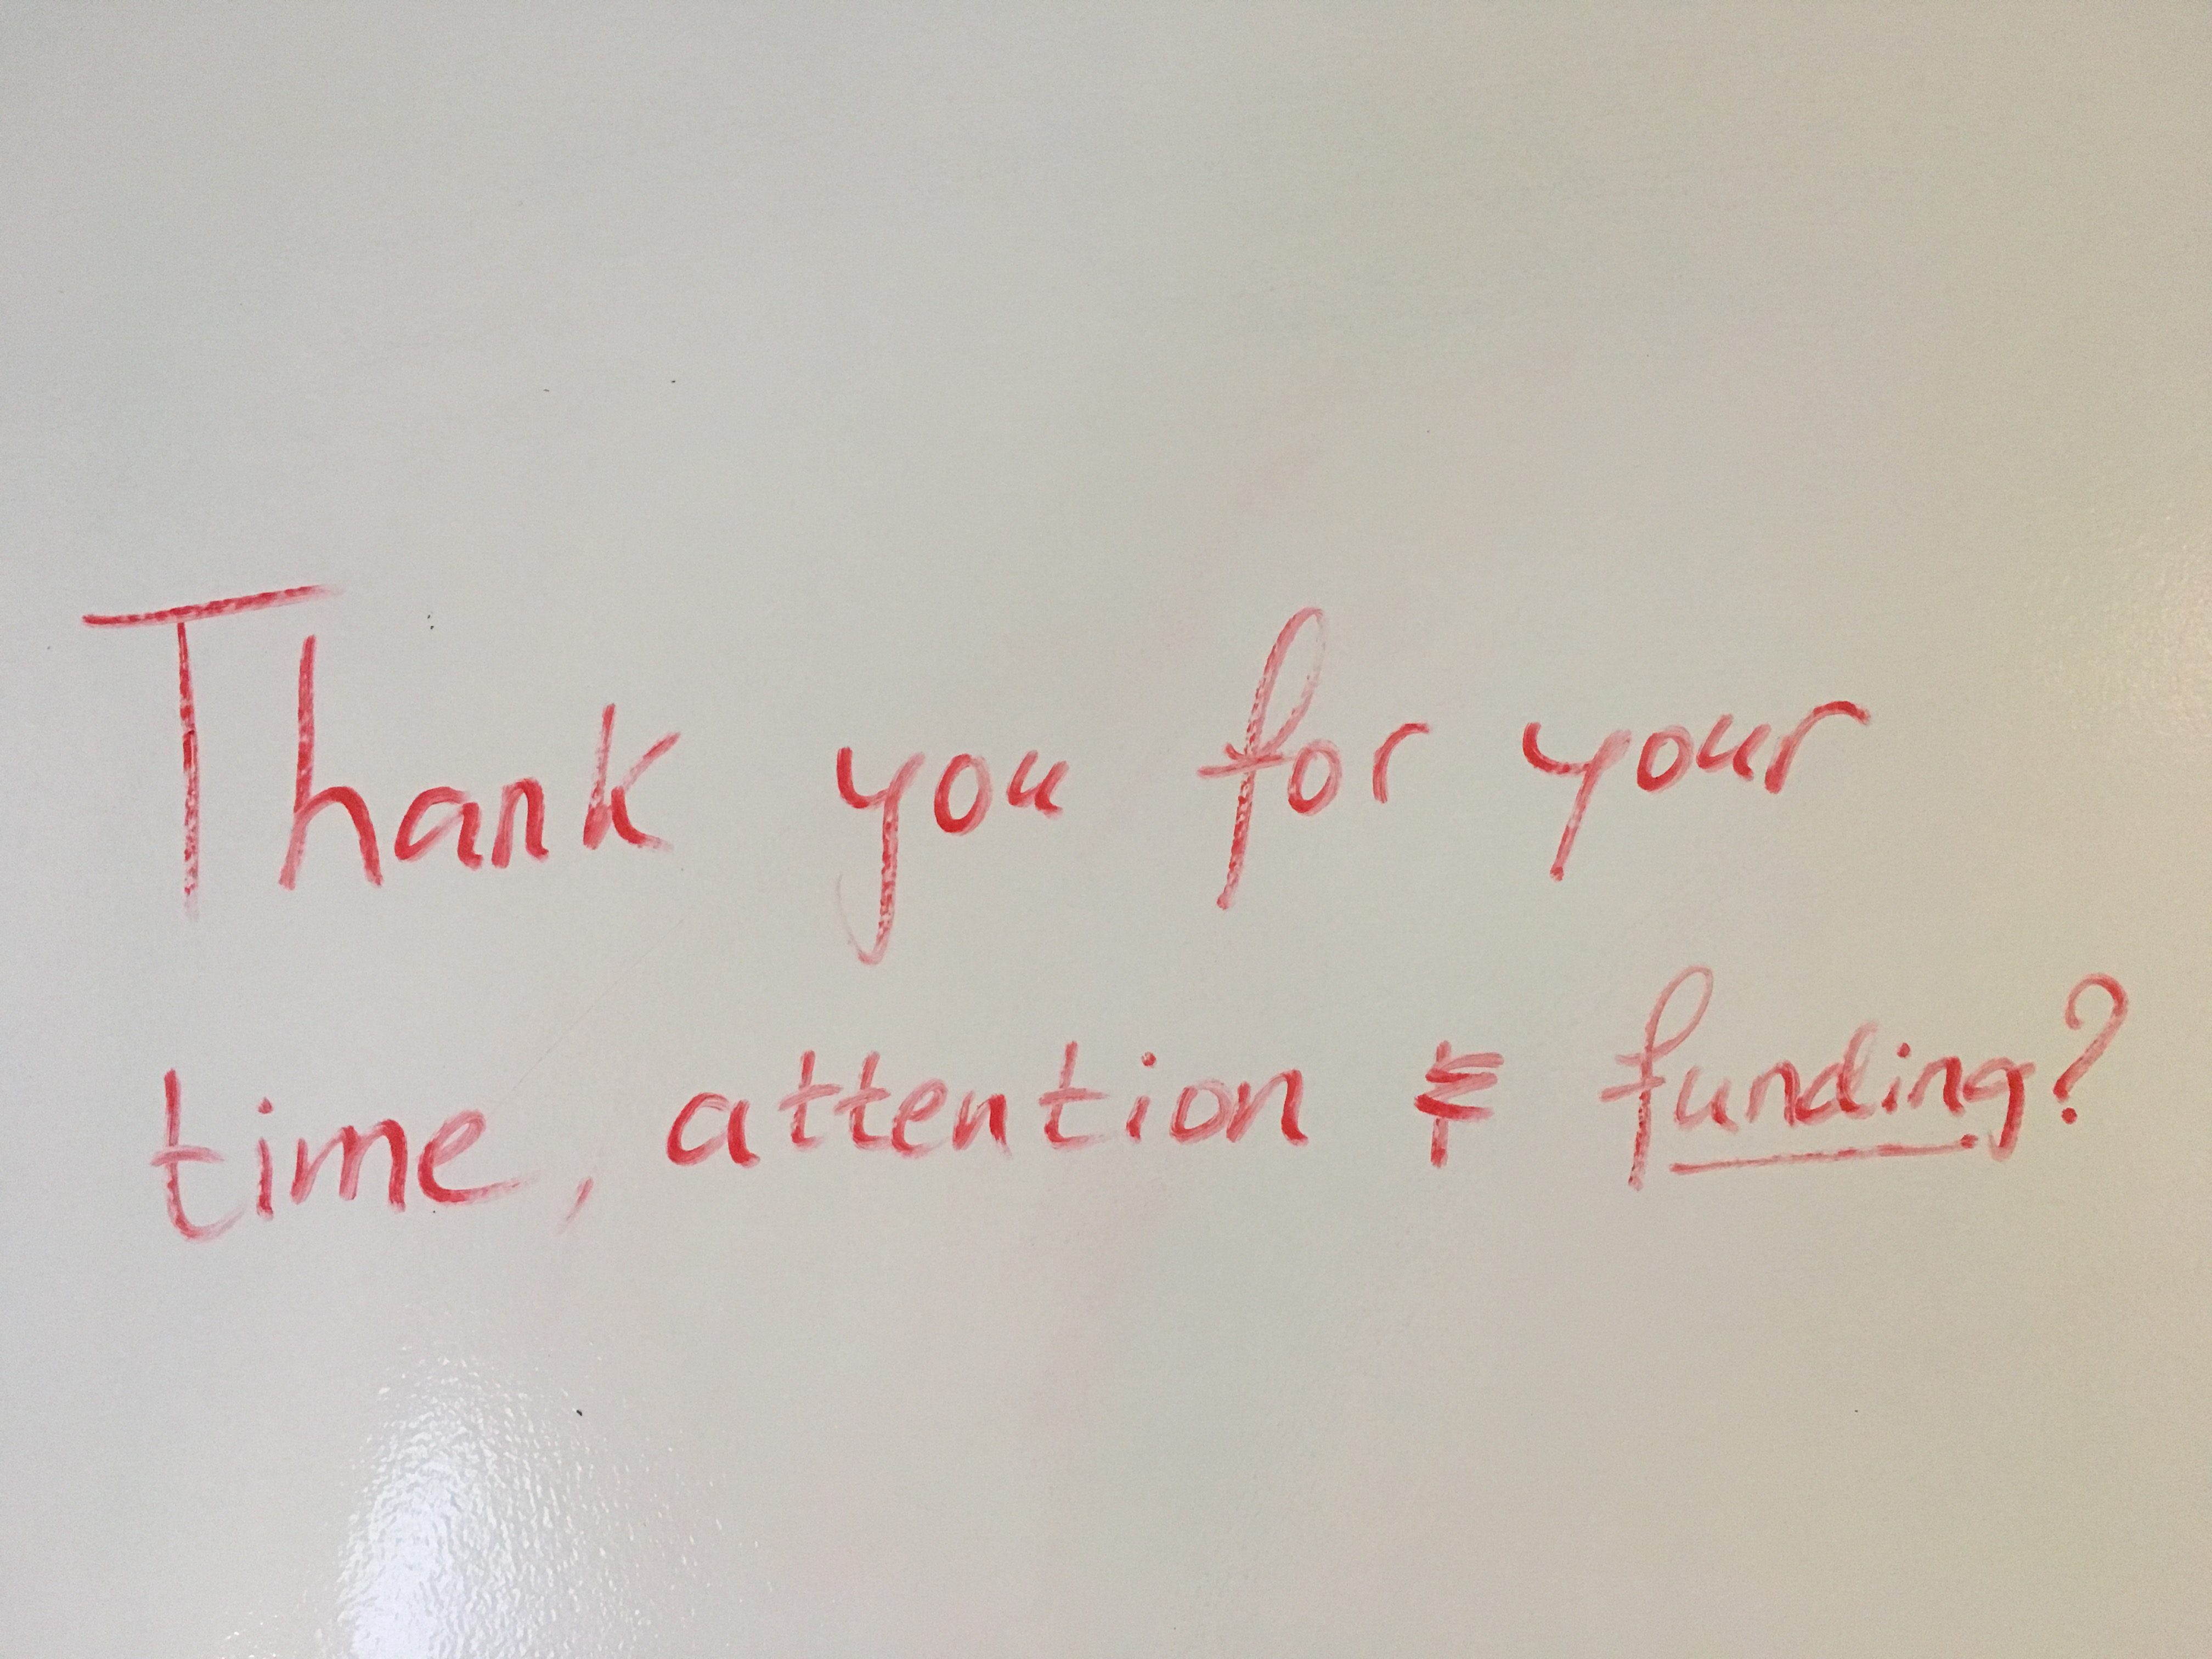 Thank you for your
time, attention & funding?